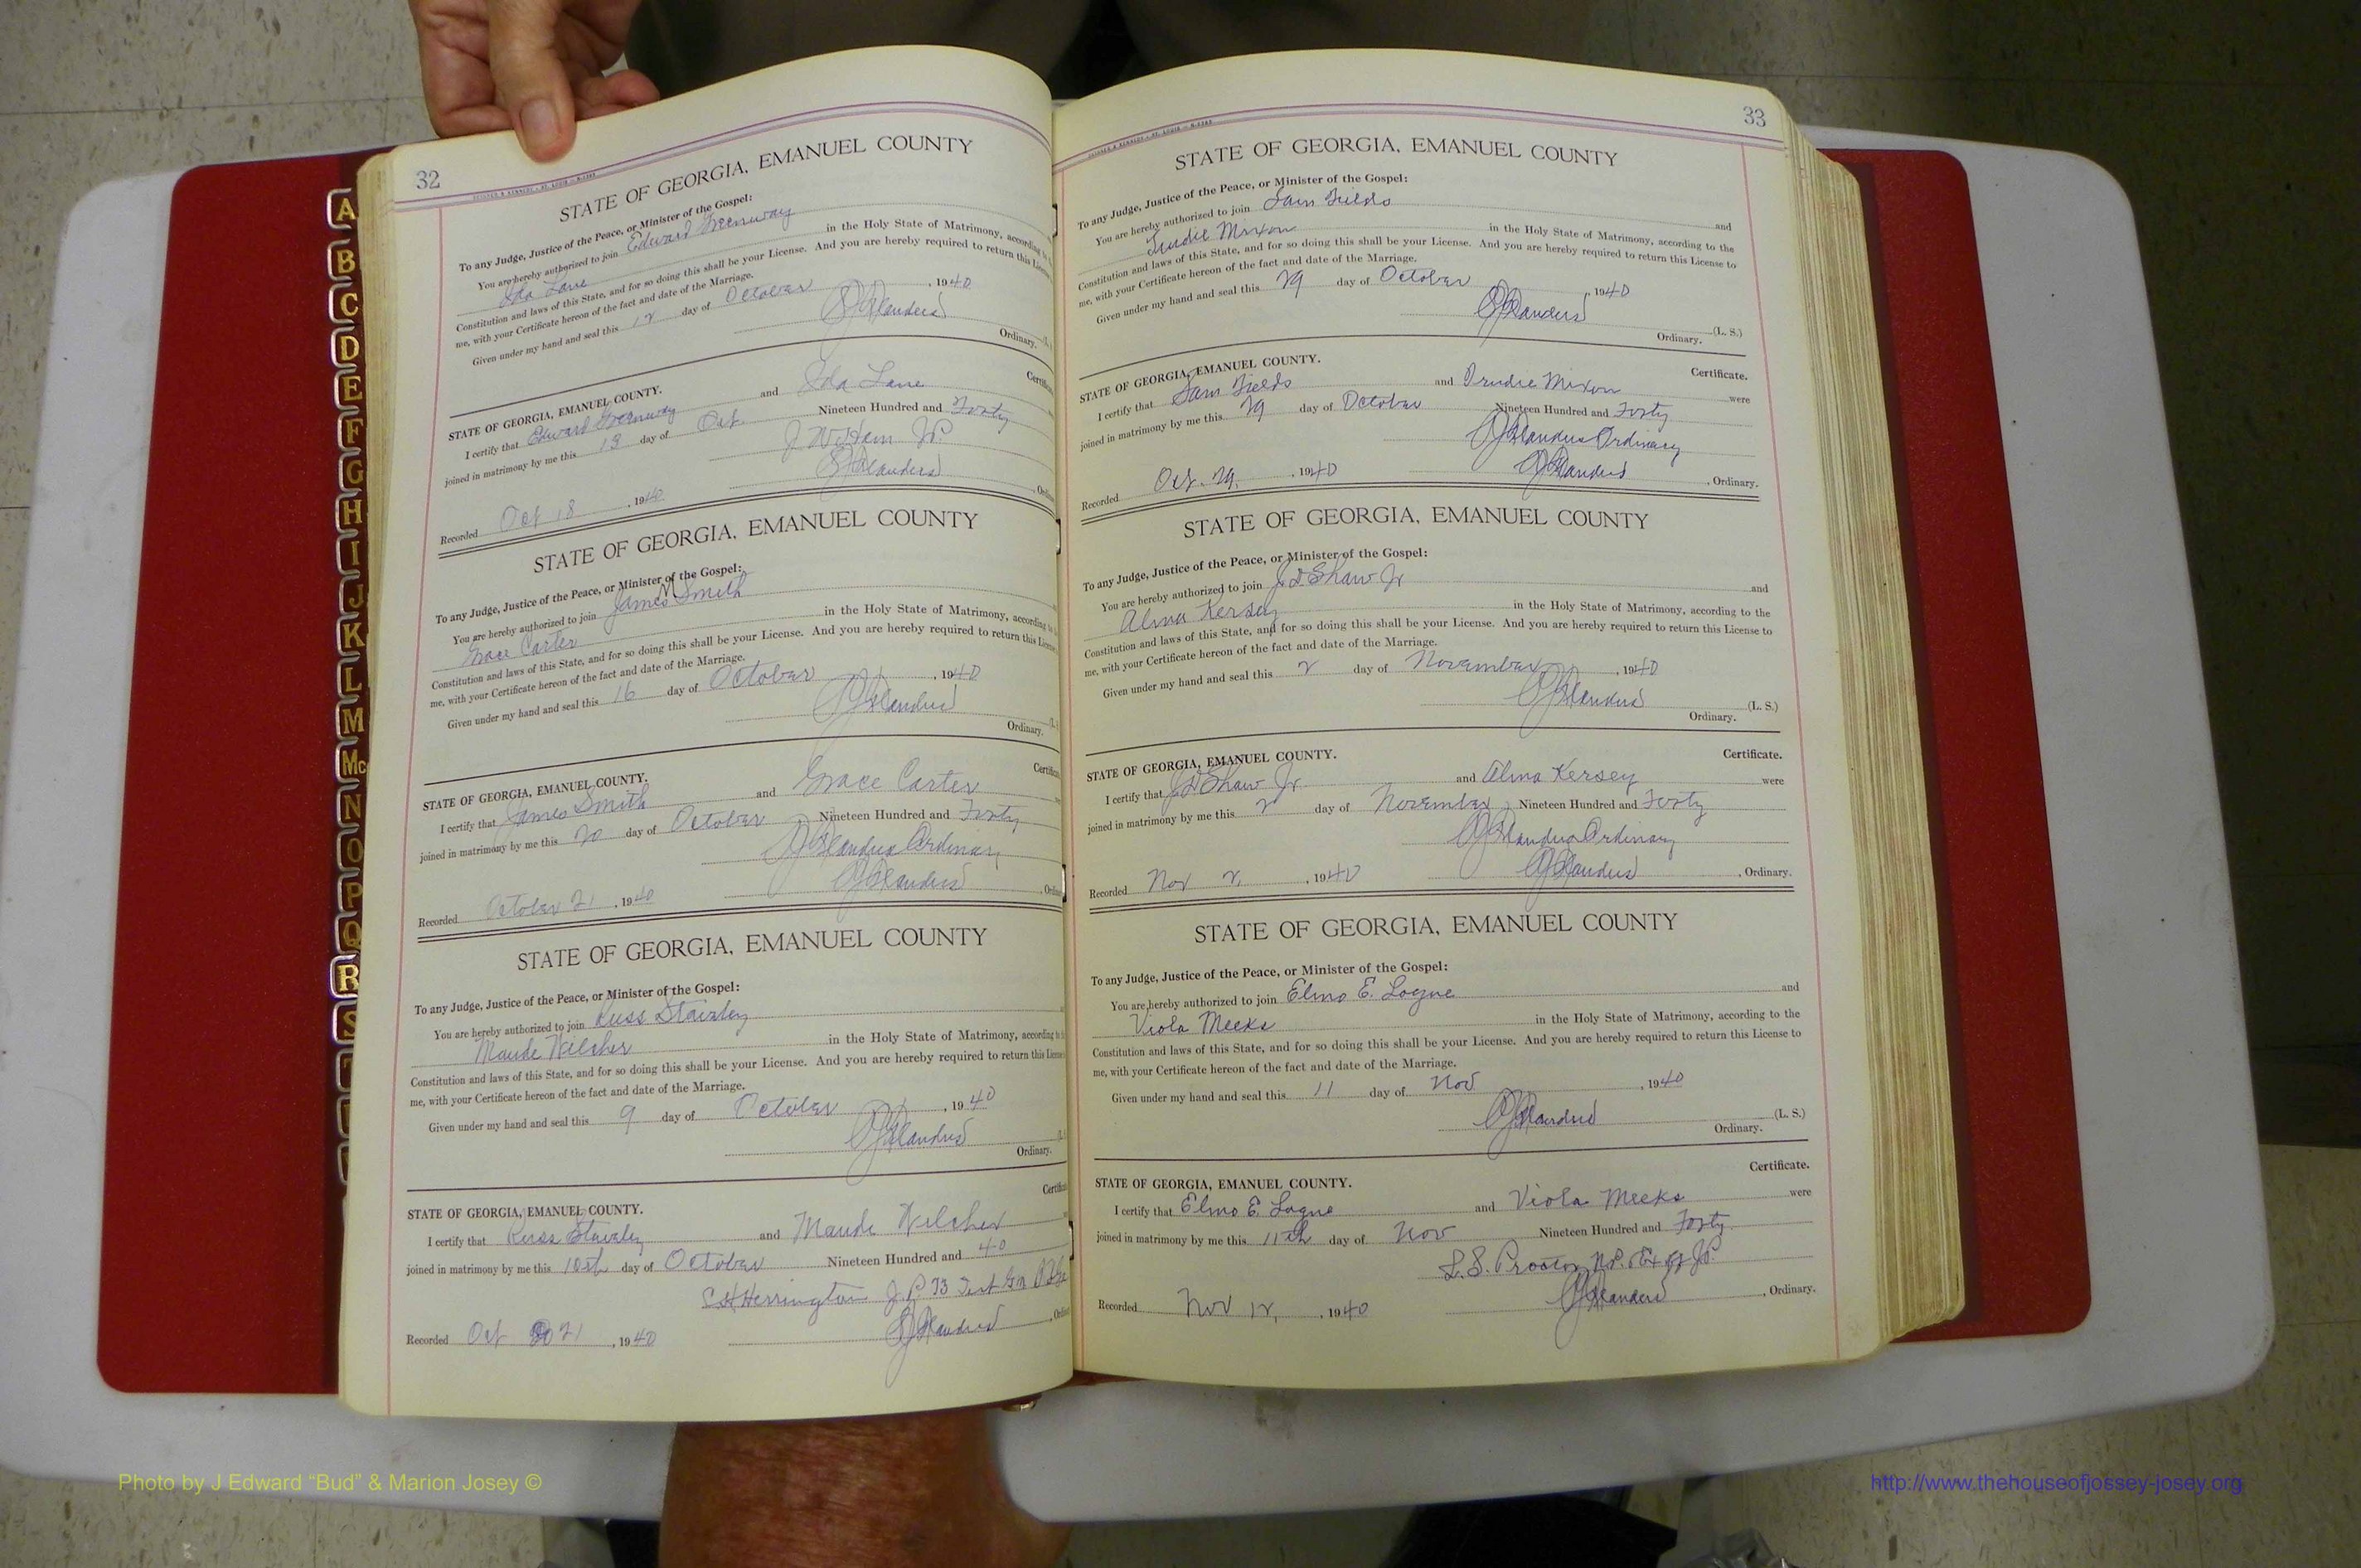 32
STATE OF GEORGIA, EMANUEL COUNTY
To any Judge, Justice of the Peace, or Minister of the Gospel:
You are hereby authorized to join Edward Greenway
Ida Lane in the Holy State of Matrimony, according to
Constitution and laws of this State, and for so doing this shall be your License. And you are hereby required to return this License
me, with your Certificate hereon of the fact and date of the Marriage.
Given under my hand and seal this 12 day of October, 1940
Ordinary.
Certific
STATE OF GEORGIA, EMANUEL COUNTY.
I certify that Edward Greenway and Ida Lane
joined in matrimony by me this 13 day of Oct. Nineteen Hundred and Forty
Recorded Oct 18, 1940
STATE OF GEORGIA, EMANUEL COUNTY
To any Judge, Justice of the Peace, or Minister of the Gospel:
You are hereby authorized to join James M Smith
Grace Carter in the Holy State of Matrimony, according to
Constitution and laws of this State, and for so doing this shall be your License. And you are hereby required to return this License
me, with your Certificate hereon of the fact and date of the Marriage.
Given under my hand and seal this 16 day of October, 1940
Ordinary.
Certific
STATE OF GEORGIA, EMANUEL COUNTY.
I certify that James Smith and Grace Carter
joined in matrimony by me this 20 day of October Nineteen Hundred and Forty
Flanders Ordinary
Flanders
Recorded October 21, 1940
STATE OF GEORGIA, EMANUEL COUNTY
To any Judge, Justice of the Peace, or Minister of the Gospel:
You are hereby authorized to join Russ
Maude Wilcher in the Holy State of Matrimony, according to
Constitution and laws of this State, and for so doing this shall be your License. And you are hereby required to return this License
me, with your Certificate hereon of the fact and date of the Marriage.
Given under my hand and seal this 9 day of October, 1940
Ordinary.
Certific
STATE OF GEORGIA, EMANUEL COUNTY.
I certify that Russ and Maude Wilcher
joined in matrimony by me this 10th day of October Nineteen Hundred and 40
Herrington J.P. 73
Recorded Oct 21, 1940
33
STATE OF GEORGIA, EMANUEL COUNTY
To any Judge, Justice of the Peace, or Minister of the Gospel:
You are hereby authorized to join Sam Fields and
Mixon in the Holy State of Matrimony, according to the
Constitution and laws of this State, and for so doing this shall be your License. And you are hereby required to return this License to
me, with your Certificate hereon of the fact and date of the Marriage.
Given under my hand and seal this 29 day of October, 1940
Flanders (L. S.)
Ordinary.
Certificate.
STATE OF GEORGIA, EMANUEL COUNTY.
I certify that Sam Fields and Mixon were
joined in matrimony by me this 29 day of October Nineteen Hundred and Forty
Flanders Ordinary
Flanders, Ordinary.
Recorded Oct. 29, 1940
STATE OF GEORGIA, EMANUEL COUNTY
To any Judge, Justice of the Peace, or Minister of the Gospel:
You are hereby authorized to join J D Shaw Jr and
Alma Kersey in the Holy State of Matrimony, according to the
Constitution and laws of this State, and for so doing this shall be your License. And you are hereby required to return this License to
me, with your Certificate hereon of the fact and date of the Marriage.
Given under my hand and seal this 2 day of November, 1940
Flanders (L. S.)
Ordinary.
Certificate.
STATE OF GEORGIA, EMANUEL COUNTY.
I certify that J D Shaw Jr. and Alma Kersey were
joined in matrimony by me this 2 day of November Nineteen Hundred and Forty
Flanders Ordinary
Flanders
Recorded Nov 2, 1940, Ordinary.
STATE OF GEORGIA, EMANUEL COUNTY
To any Judge, Justice of the Peace, or Minister of the Gospel:
You are hereby authorized to join Elmo E. Logue and
Viola Meeks in the Holy State of Matrimony, according to the
Constitution and laws of this State, and for so doing this shall be your License. And you are hereby required to return this License to
me, with your Certificate hereon of the fact and date of the Marriage.
Given under my hand and seal this 11 day of Nov, 1940
Flanders (L. S.)
Ordinary.
Certificate.
STATE OF GEORGIA, EMANUEL COUNTY.
I certify that Elmo E. Logue and Viola Meeks were
joined in matrimony by me this 11th day of Nov Nineteen Hundred and Forty
L.S. Proctor N.P. & Ex off J.P.
Flanders, Ordinary.
Recorded Nov 12, 1940
A
B
C
D
E
F
G
H
I
J
K
L
M
Mc
N
O
P
Q
R
S
T
U
Photo by J Edward “Bud” & Marion Josey ©
http://www.thehouseofjossey-josey.org